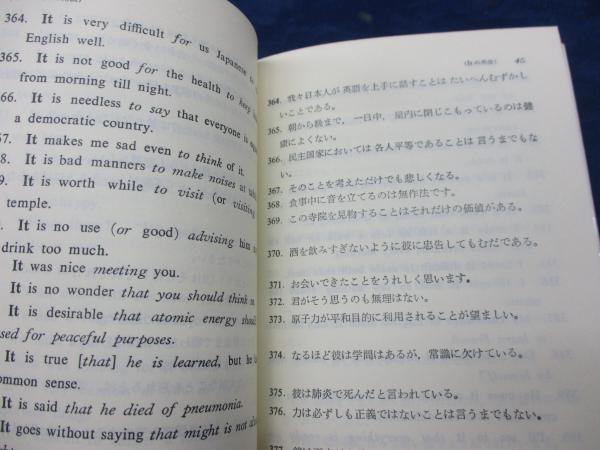 364. It is very difficult for us Japanese to
English well.
365. It is not good for the health to keep
from morning till night.
66. It is needless to say that everyone is
a democratic country.
67. It makes me sad even to think of it.
8. It is bad manners to make noises at
9. It is worth while to visit (or visiting
temple.
. It is no use (or good) advising him
drink too much.
It was nice meeting you.
It is no wonder that you should think
It is desirable that atomic energy should
sed for peaceful purposes.
It is true [that] he is learned, but he
ommon sense.
It is said that he died of pneumonia.
It goes without saying that might is not
45
364. 我々日本人が英語を上手に話すことは たいへんむずかし
いことである。
365. 朝から晩まで、一日中、屋内に閉じこもっているのは健
康によくない。
366. 民主国家においては 各人平等であることは 言うまでもな
い。
367. そのことを考えただけでも悲しくなる。
368. 食事中に音を立てるのは無作法です。
369. この寺院を見物することはそれだけの価値がある。
370. 酒を飲みすぎないように彼に忠告してもむだである。
371. お会いできたことをうれしく思います。
372. 君がそう思うのも無理はない。
373. 原子力が平和目的に利用されることが望ましい。
374. なるほど彼は学問はあるが、常識に欠けている。
375. 彼は肺炎で死んだと言われている。
376. 力は必ずしも正義ではないことは言うまでもない。
377.